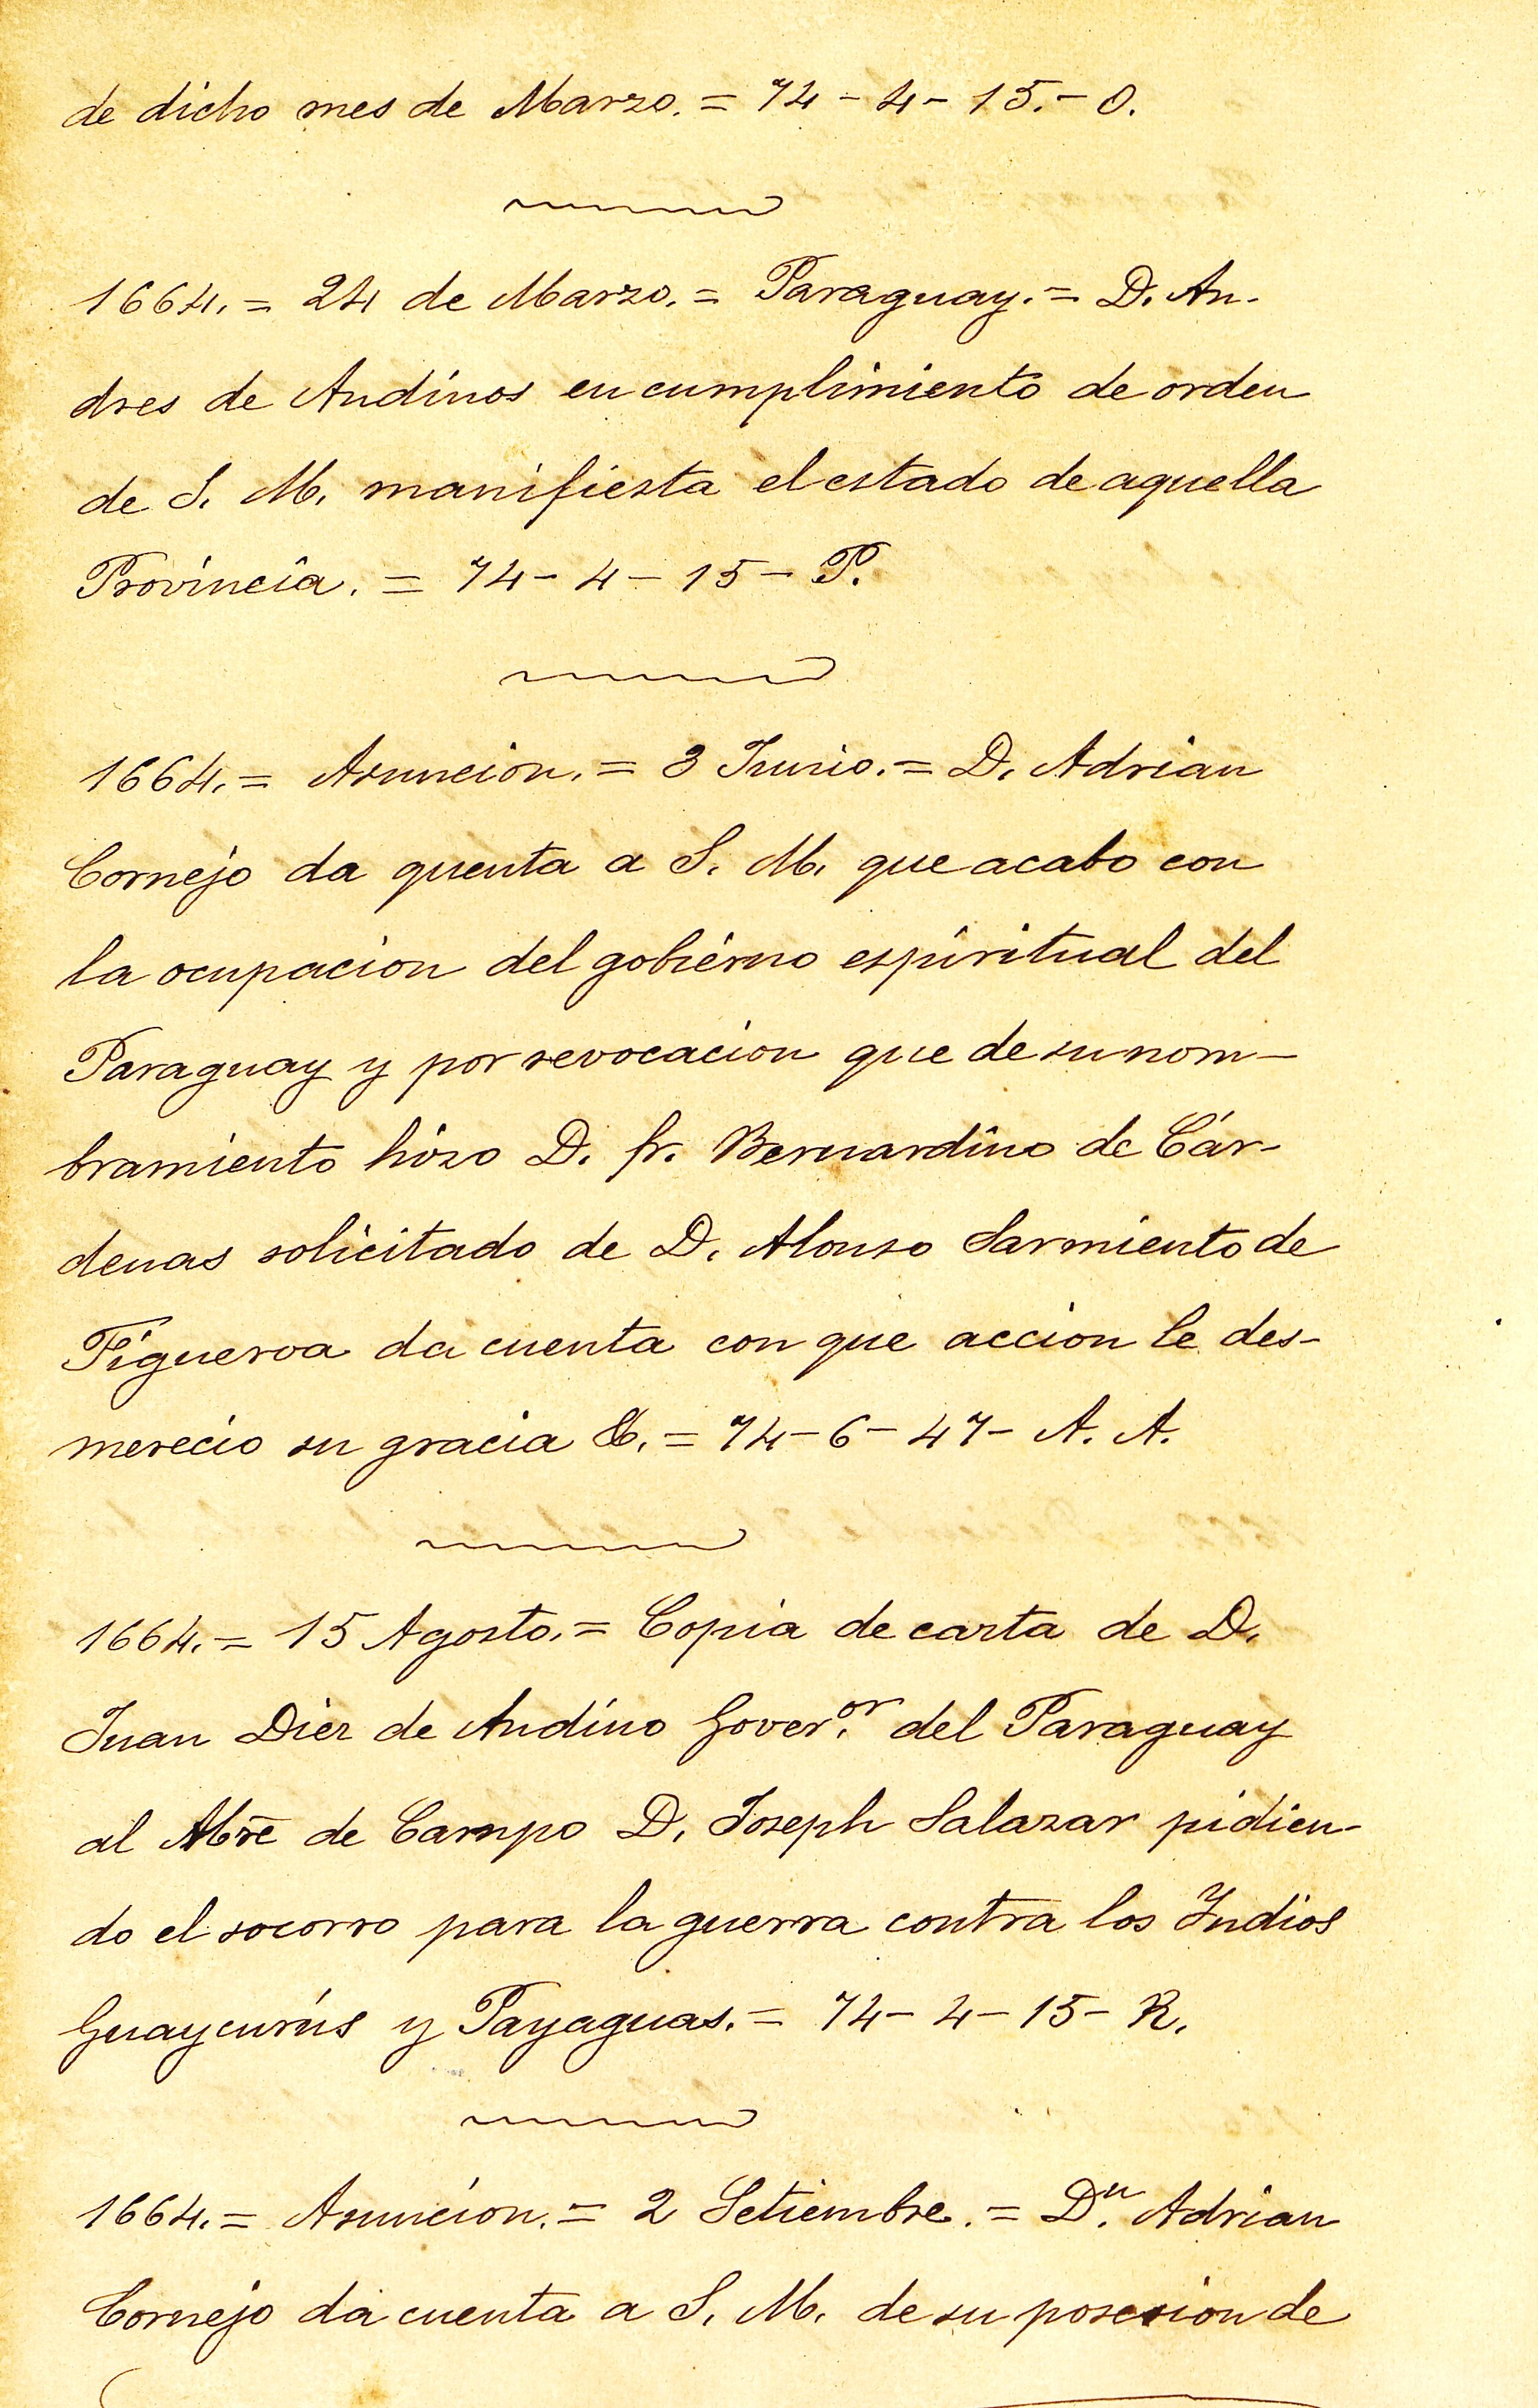 de dicho mes de Marzo. = 74 - 4 - 15. - O.
1664. = 24 de Marzo. = Paraguay. = D. An-
dres de Andinos en cumplimiento de orden
de S. M. manifiesta el estado de aquella
Provincia. = 74 - 4 - 15 - P.
1664. = Asuncion. = 3 Junio. = D. Adrian
Cornejo da quenta a S. M. que acabo con
la ocupacion del gobierno espiritual del
Paraguay y por revocacion que de su nom-
bramiento hizo D. fr. Bernardino de Cár-
denas solicitado de D. Alonso Sarmiento de
Figueroa da cuenta con que accion le des-
merecio su gracia &. = 74 - 6 - 47 - A. A.
1664. = 15 Agosto. = Copia de carta de D.
Juan Diez de Andino Gover.or del Paraguay
al Mr̄e de Campo D. Joseph Salazar pidien-
do el socorro para la guerra contra los Indios
Guaycurús y Payaguas. = 74 - 4 - 15 - R.
1664. = Asuncion. = 2 Setiembre. = D.n Adrian
Cornejo da cuenta a S. M. de su posesion de